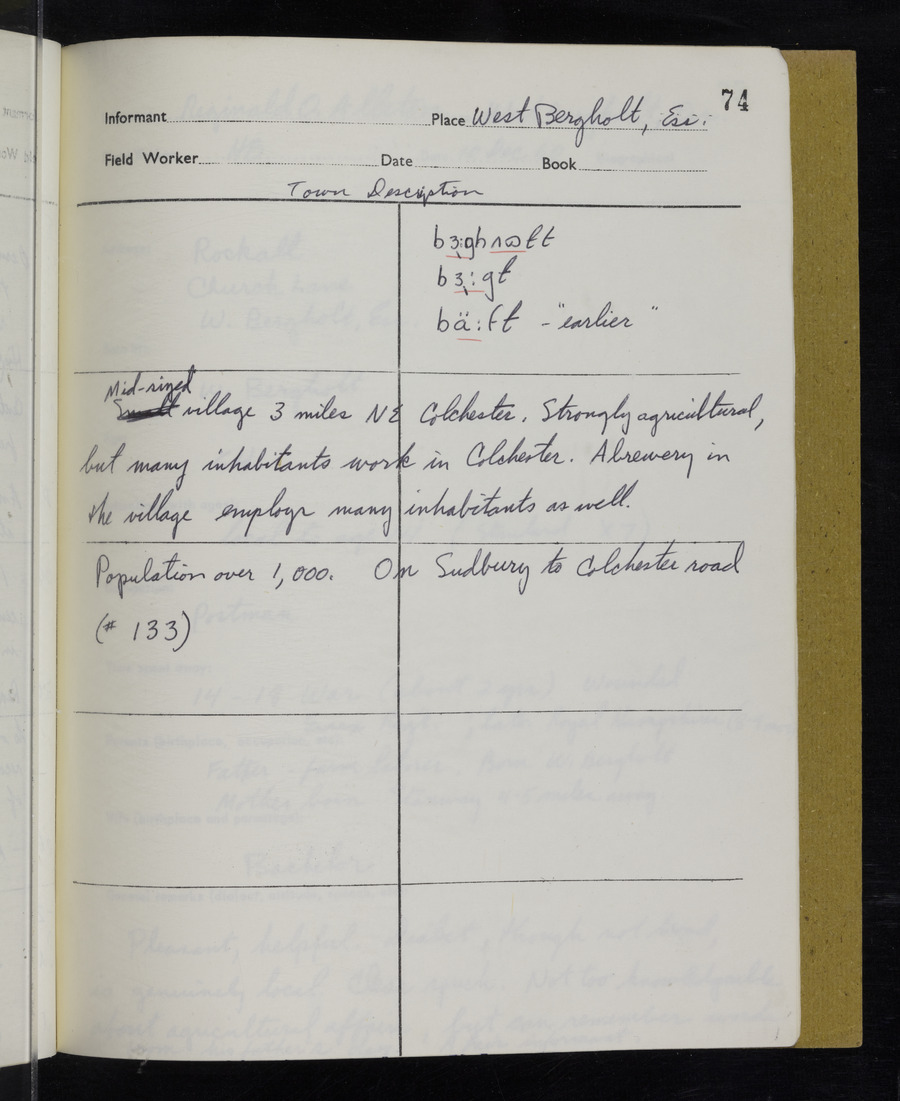 74
Informant Place West Bergholt, Ess.
Field Worker Date Book
Town Description
bɜ:ghɷlt
bɜ:gt
bä:ft - "earlier"
Mid-sized
Small village 3 miles NE Colchester. Strongly agricultural,
but many inhabitants work in Colchester. A brewery in
the village employs many inhabitants as well.
Population over 1,000. On Sudbury to Colchester road
(# 133)